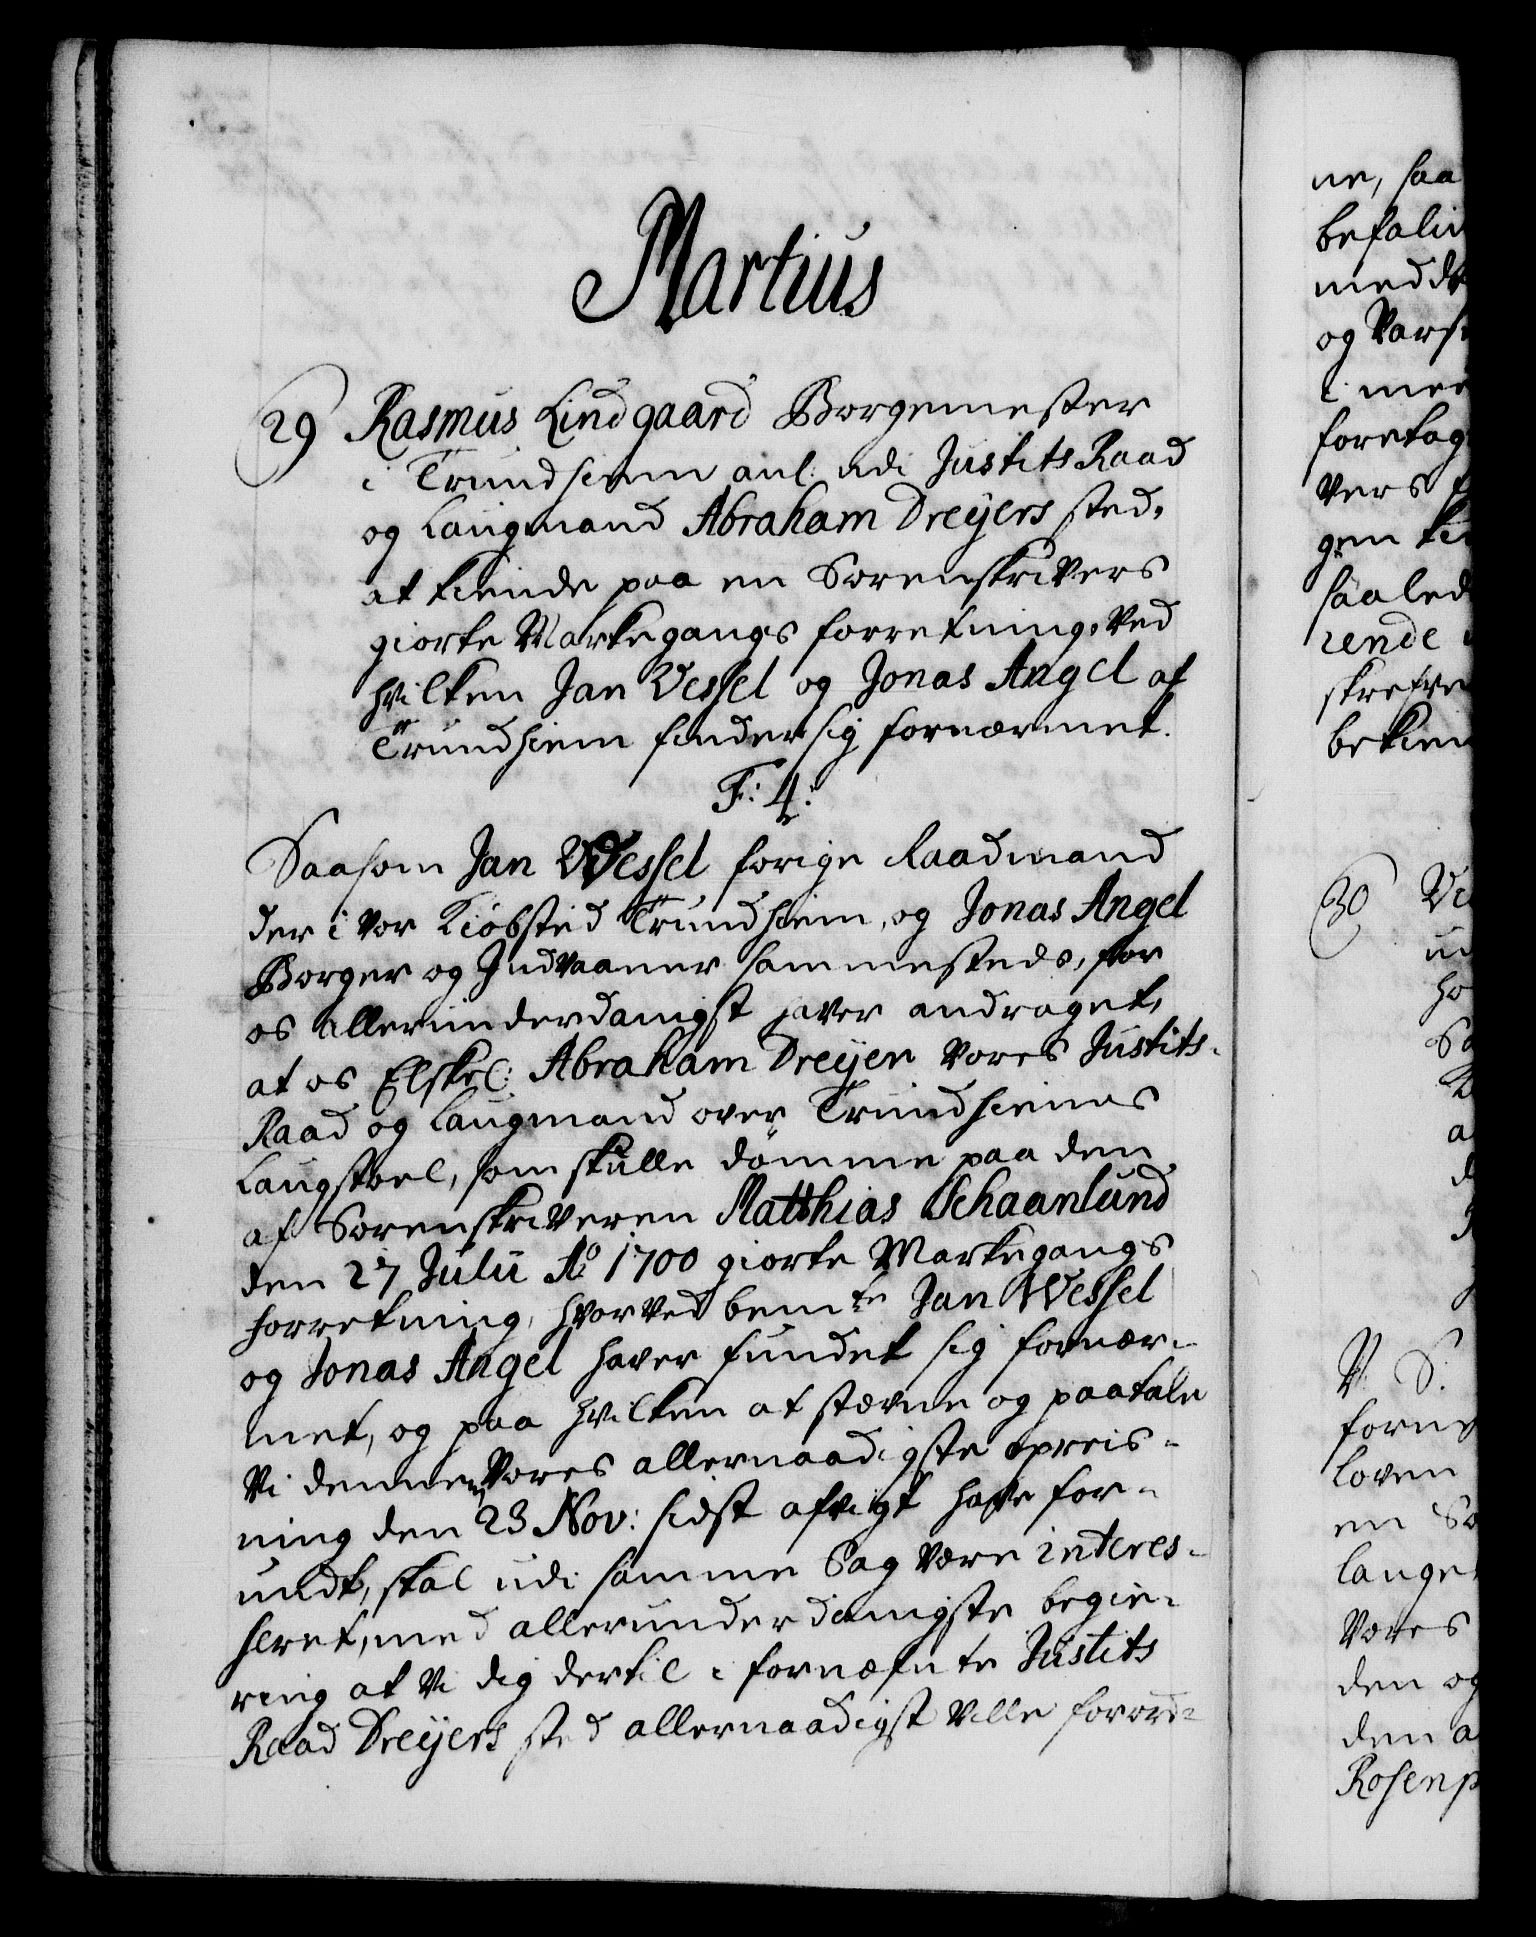 Martius
29 Rasmus Lindgaard Borgemester
i Trundhiem anl: udi Justits Raad
og Laugmand Abraham Dreyers sted,
at kiende paa en Sorenskrivers
giorte Markegangs forretning, ved
hvilken Jan Wessel og Jonas Angel af
Trundhiem finder sig fornærmet.
F: 4:
Saasom Jan Wessel forige Raadmand
der i vor Kiøbsted Trundhiem, og Jonas Angel
Borger og Indvaaner sammesteds, for
os allerunderdanigst haver andraget,
at os Elskel: Abraham Dreyer vores Justits-
Raad og Laugmand over Trundhiems
Laugstoel, som skulle dømme paa den
af Sorenskriveren Matthias Schaanlund
den 27 Julii Ao 1700 giorte Markegangs
forretning, hvorved bemte Jan Wessel
og Jonas Angel haver fundet sig fornær-
met, og paa hvilken at stævne og paatale
Vi dennem vores allernaadigste opreis-
ning den 23 Nov: sidst afvigt have for-
undt, skal udi samme Sag være interes-
seret, med allerunderdanigste begie-
ring at Vi dig dertil i fornæfnte Justits
Raad Dreyers sted allernaadigst ville forord-
ne, saa
og
foretag
vers
gen
saaled
rende
skrefve
bekien
30 Vi
V. S.
loven
en So
lange
Vores
den og
den a
Rosenp